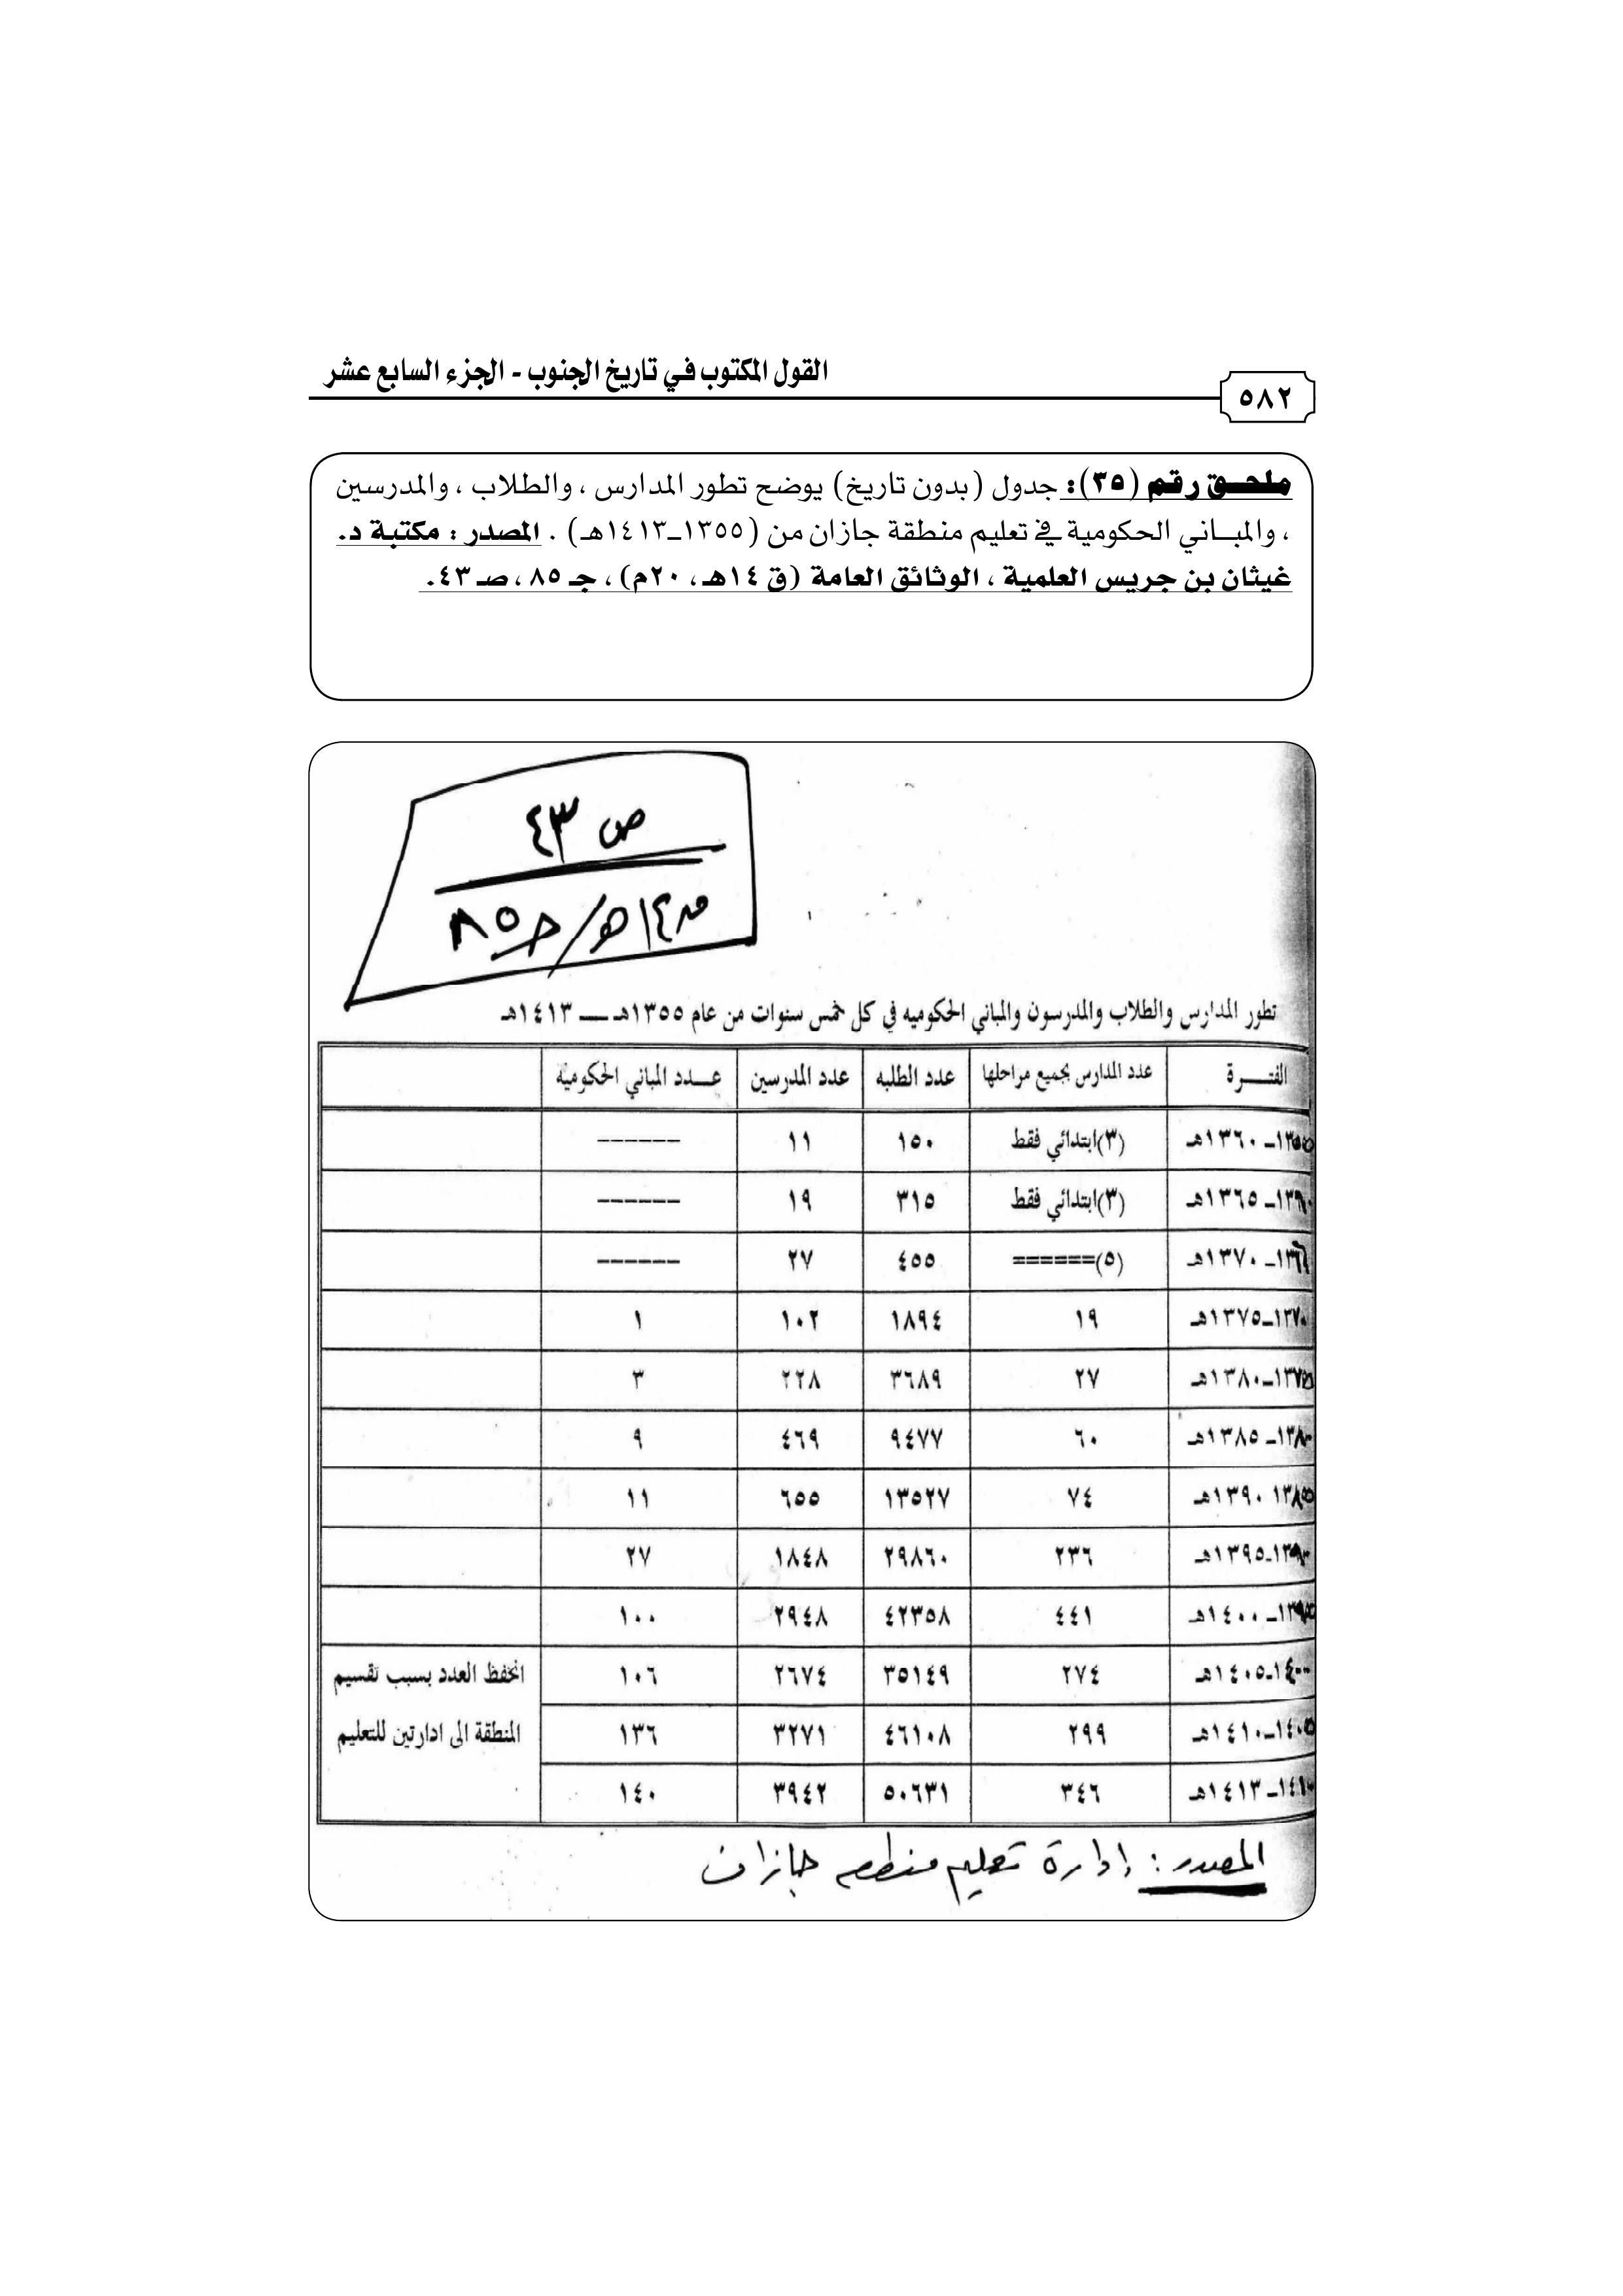 القول المكتوب في تاريخ الجنوب - الجزء السابع عشر
٥٨٢
ملحق رقم (٣٥): جدول (بدون تاريخ) يوضح تطور المدارس ، والطلاب ، والمدرسين
، والمباني الحكومية في تعليم منطقة جازان من (١٣٥٥ـ١٤١٣هـ) . المصدر : مكتبة د.
غيثان بن جريس العلمية ، الوثائق العامة (ق ١٤هـ ، ٢٠م) ، جـ ٨٥ ، صـ ٤٣.
ص ٤٣
ق١٤هـ/جـ٨٥
تطور المدارس والطلاب والمدرسون والمباني الحكوميه في كل خمس سنوات من عام ١٣٥٥هـ ــ ١٤١٣هـ
الفتــرة عدد المدارس بجميع مراحلها عدد الطلبه عدد المدرسين عــدد المباني الحكوميه
١٣٥٥ـ ١٣٦٠هـ (٣)ابتدائي فقط ١٥٠ ١١ ------
١٣٦٠ـ ١٣٦٥هـ (٣)ابتدائي فقط ٣١٥ ١٩ ------
ـ ١٣٧٠هـ (٥)====== ٤٥٥ ٢٧ ------
١٣٧٠ـ١٣٧٥هـ ١٩ ١٨٩٤ ١٠٢ ١
١٣٧٥ـ١٣٨٠هـ ٢٧ ٣٦٨٩ ٢٢٨ ٣
١٣٨٠ـ ١٣٨٥هـ ٦٠ ٩٤٧٧ ٤٦٩ ٩
١٣٨٥ ١٣٩٠هـ ٧٤ ١٣٥٢٧ ٦٥٥ ١١
١٣٩٠ـ١٣٩٥هـ ٢٣٦ ٢٩٨٦٠ ١٨٤٨ ٢٧
١٣٩٥ـ ١٤٠٠هـ ٤٤١ ٤٢٣٥٨ ٢٩٤٨ ١٠٠
١٤٠٠ـ١٤٠٥هـ ٢٧٤ ٣٥١٤٩ ٢٦٧٤ ١٠٦ انخفظ العدد بسبب تقسيم
١٤٠٥ـ١٤١٠هـ ٢٩٩ ٤٦١٠٨ ٣٢٧١ ١٣٦ المنطقة الى ادارتين للتعليم
١٤١٠ـ١٤١٣هـ ٣٤٦ ٥٠٦٣١ ٣٩٤٢ ١٤٠
المصدر : إدارة تعليم منطقة جازان